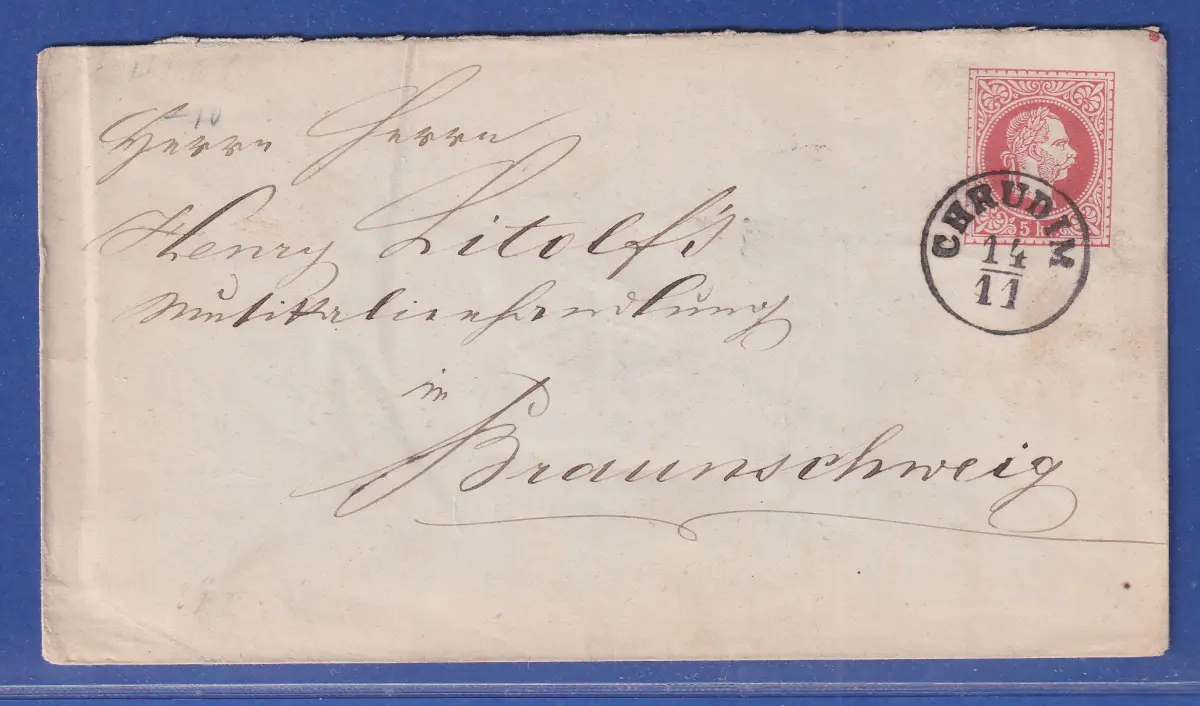 Herrn Herrn
Henry Litolff's
Musikalienhandlung
in
Braunschweig
5 kr
CHRUDIM
14
11